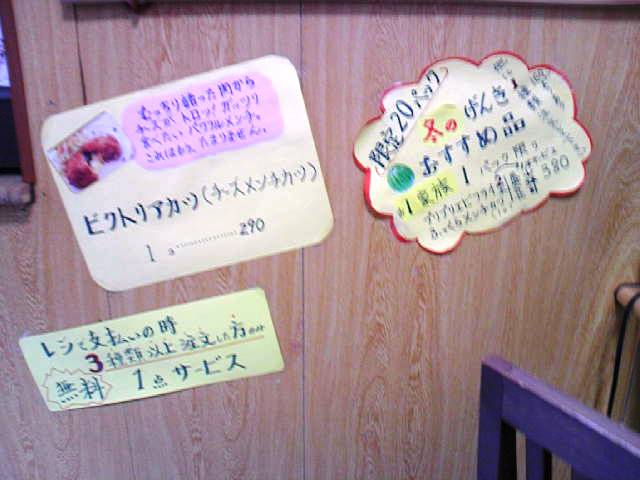 むっちり詰った肉から
チーズが トロッ! ガッツリ
食べたい パワフルメンチ。
これはもう たまりません。
ビクトリアカツ(チーズメンチカツ)
1コ 290
限定20パック
冬の げんき
おすすめ品
1家族 1パック限り
プリプリエビフライ
580
レジで支払いの時
3種類以上 注文した方のみ
無料 1点サービス